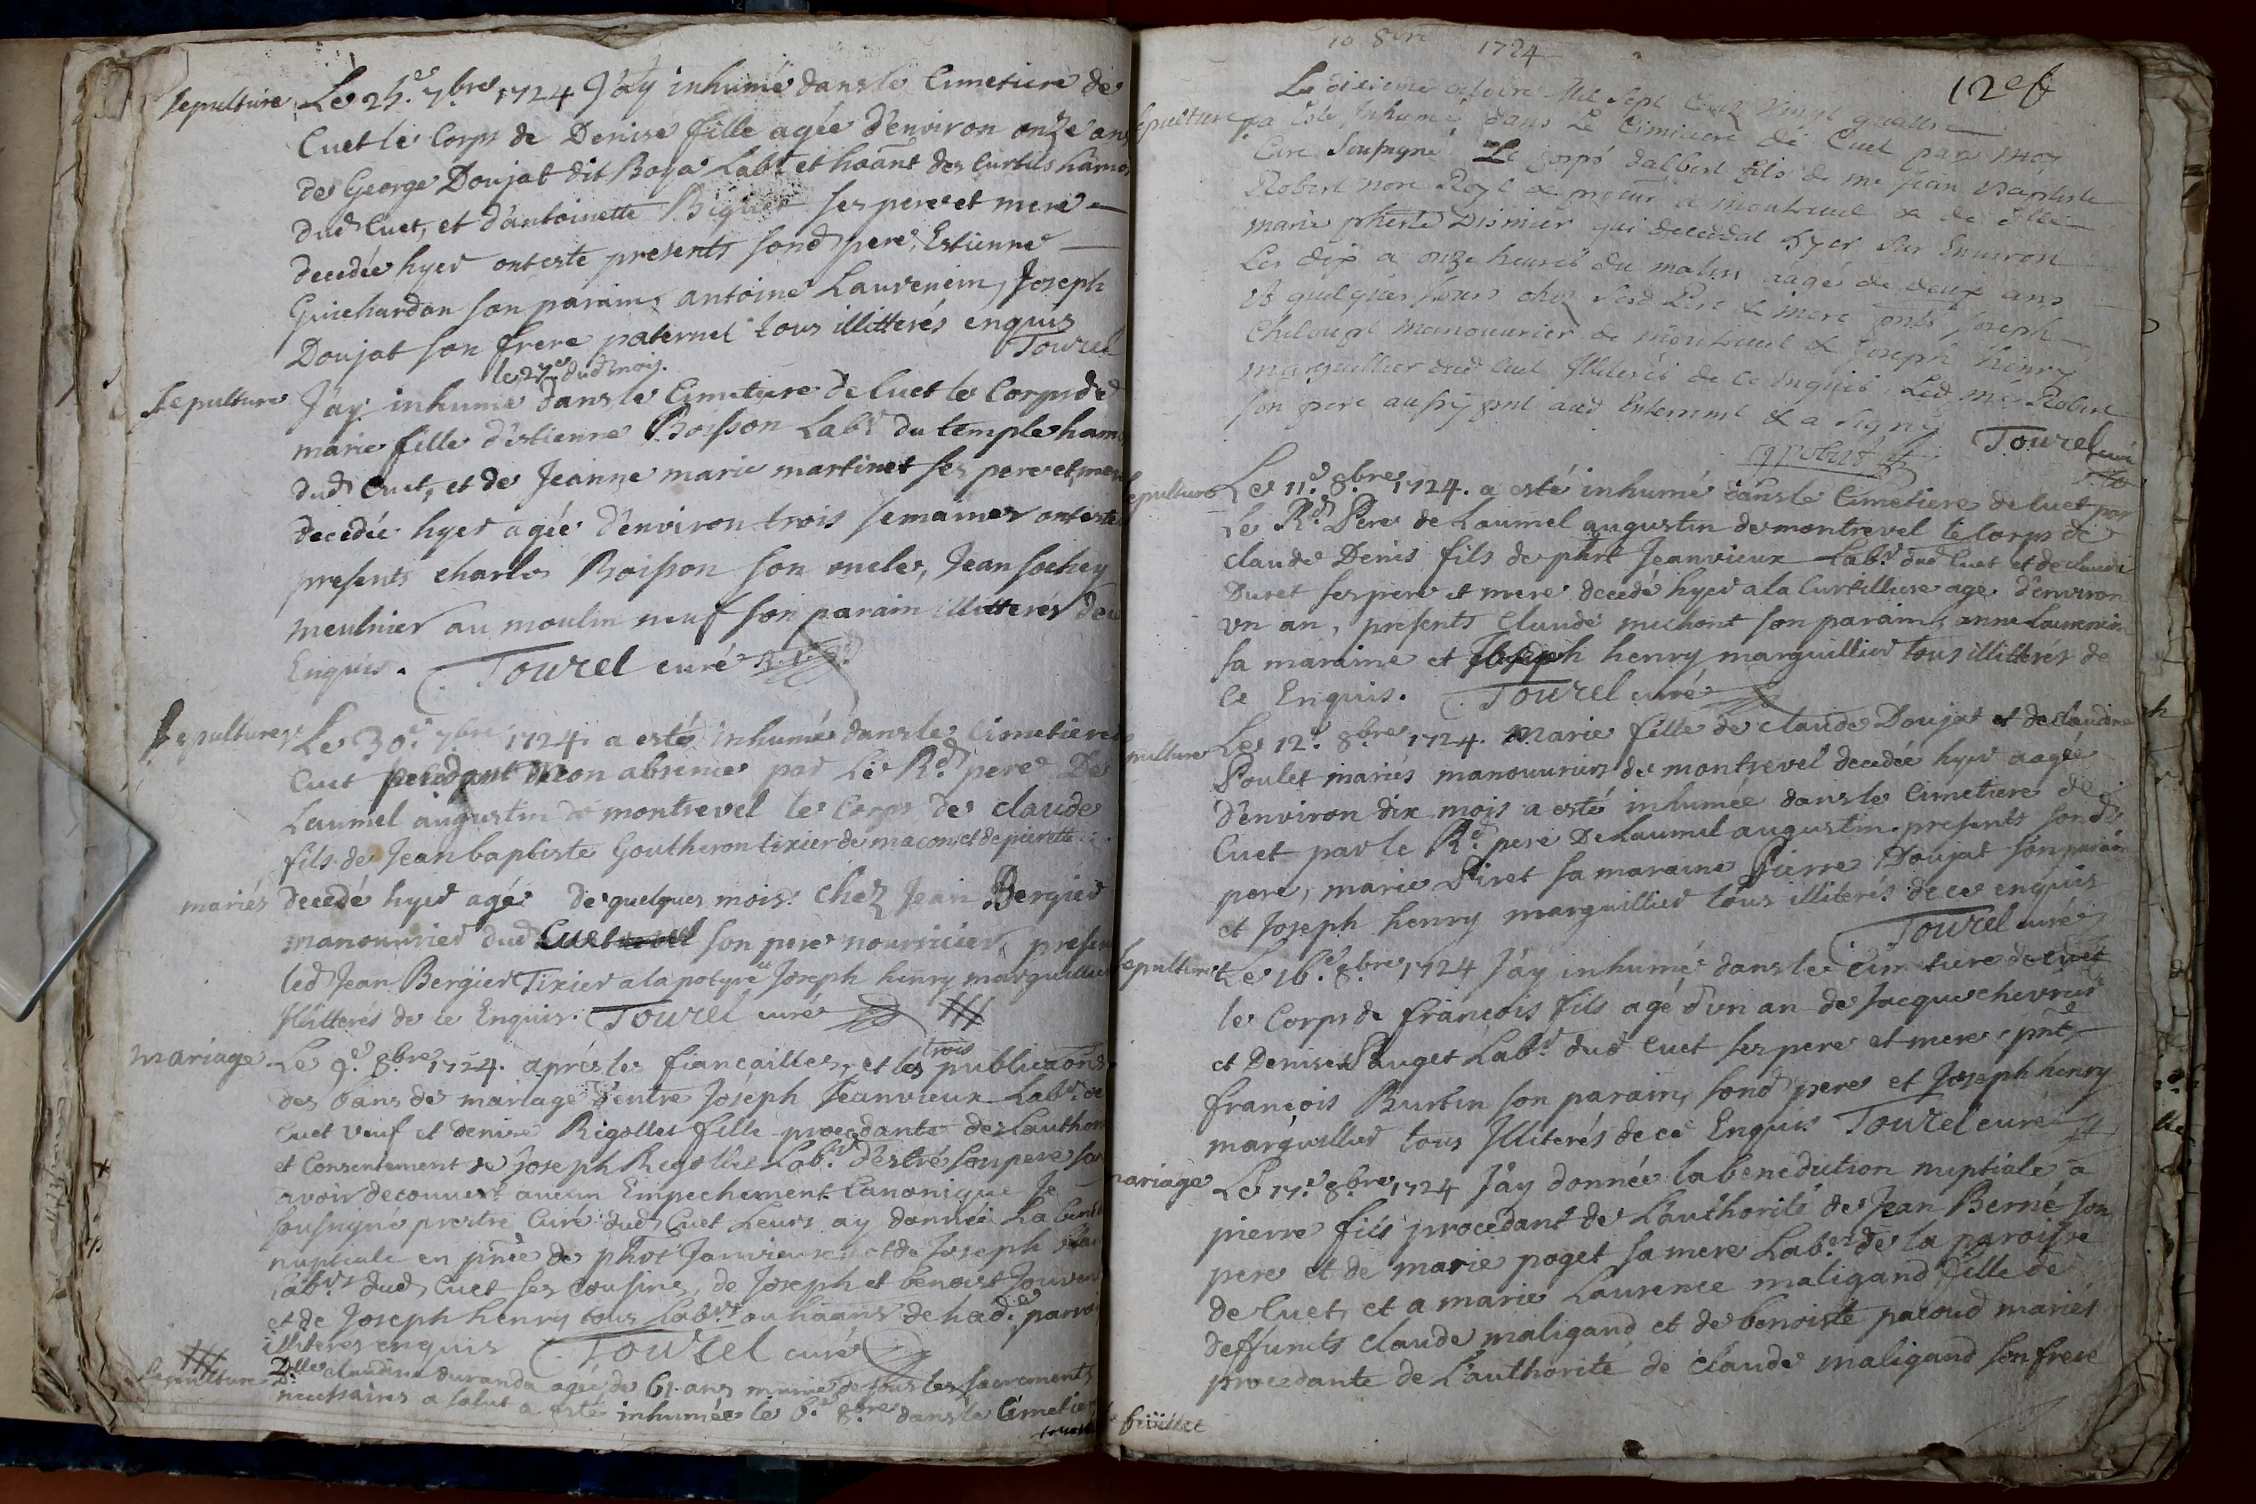 sepulture Le 25.e 7bre 1724 J'ay inhumé dans le Cimetiere de
Cuet le Corps de Denise fille agée d'environ onze ans
de George Doujat dit Boya Labr et haânt des Curtils hamo
dud Cuet, et d'antoinette Biguet ses pere et mere
decedée hyer ont esté presents sond pere, Estienne
Guichardon son parain, antoine Laurencin, Joseph
Doujat son frere paternel tous illitterés enquis
Tourel
le 27e dud mois.
sepulture J'ay inhumé dans le Cimetiere de Cuet le Corps de
marie fille d'estienne Boisson Labr du temple ham
dud Cuet, et de Jeanne marie martinet ses pere et mere
decedée hyer agée d'environ trois semaines ont esté
presents charles Boisson son oncle, Jean sochey
meulnier au moulin neuf son parain illitterés de ce
Enquis. Tourel curé
sepulture Le 30.e 7bre 1724. a esté inhumé dans le Cimetiere
Cuet pendant mon absence par Le Rd pere De
Laumel augustin de montrevel le Corps de claude
fils de Jean baptiste Goutheron tixier de macon et de pierrette
mariés decedé hyer agé de quelques mois chez Jean Bergier
manouvrier dud Cuet son pere nourricier, present
led Jean Bergier Tixier a la potyre et Joseph henry marguillier
Illitterés de ce Enquis. Tourel curé
mariage Le 9.e 8bre 1724. aprés les fiançailles, et les trois publica͠ons
des bans de mariage d'entre Joseph Jeanvieux Labr de
Cuet veuf et denise Rigollet fille procedante de Lauthor
et Consentement de Joseph Rigollet Labr d'estré son pere sans
avoir decouvert aucun Empechement Canonique Je
sousigné prestre Curé dud Cuet Leurs ay donnée La bened
nuptiale en pn͠ce de phbt Janvieux et de Joseph
Labrs dud Cuet ses cousins, de Joseph et benoist Jouven
et de Joseph henry tous Labrs ou haâns de lad. parroi
illiteres enquis Tourel curé
sepulture Dlle claudine duranda agée de 61. ans munie de tous les sacrements
necessaires a salut a esté inhumée le 6.e 8bre dans le Cimetier
tourel
10 8bre 1724
12e f
Le dixieme octobre Mil Sept Centz Vingt quattre
sepulture a esté Inhumé dans Le Cimitiere de Cuet par moy
Curé Sousigné Le Corps dalbert fils de me Jean Baptiste
Robert nore Royl & procur a montrevel & de dlle
marie pherte Disnier qui deceddat hyer Sur Environ
Les dix a onze heures du matin aagé de deux ans
& quelques Jours chez Sesd Pere & mere pnts Joseph
Chiloup manouvrier de montrevel & Joseph henry
marguillier dud Cuet Illiterés de ce Enquis Led me Robert
son pere aussy pnt aud Enterremt & a signé
Tourel curé
sepulture Le 11.e 8bre 1724. a esté inhumé dans le Cimetiere de Cuet par
Le Rd Pere de Laumel augustin de montrevel le Corps de
claude Denis fils de phbrt Jeanvieux Labr dud Cuet et de claudi
Duret ses pere et mere decedé hyer a la Curtilliere agé d'environ
un an, presents Claude michont son parain, anne Laurencin
sa maraine et Joseph henry marguillier tous illitteres de
ce Enquis. Tourel curé
sepulture Le 12.e 8bre 1724. Marie fille de claude Doujat et de claudine
Poulet mariés manouvriers de montrevel decedée hyer aagée
d'environ dix mois a esté inhumée dans le Cimetiere de
Cuet par le Rd pere De Laumel augustin. presents sond
pere, marie Piret sa maraine Pierre Doujat son parain
et Joseph henry marguillier tous illiterés de ce enquis
Tourel curé
sepulture Le 16.e 8bre 1724 J'ay inhumé dans le Cimetiere de Cuet
le Corps de françois fils agé d'un an de Jacque chevrier
et Denise Pauget Labr dud Cuet ses pere et mere, pnts
françois Burtin son parain, sond pere et Joseph henry
marguillier tous Illiterés de ce Enquis Tourel curé
mariage Le 17.e 8bre 1724 J'ay donnée la benediction nuptiale a
pierre fils procedant de Lauthorité de Jean Berné son
pere et de marie poget sa mere Labrs de la paroisse
de Cuet, et a marie Laurence maligand fille de
deffuncts claude maligand et de benoiste pacoud mariés
procedante de Lauthorité de claude maligand son frere
feuillet